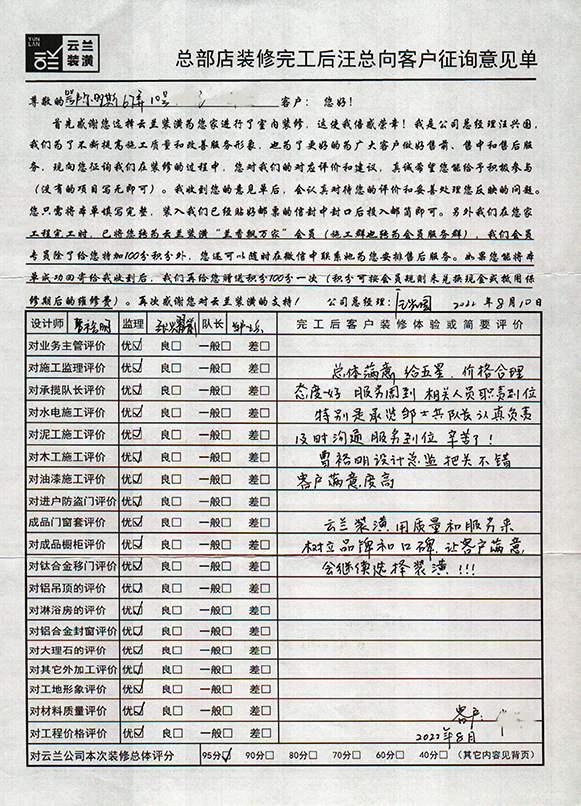 YUN
LAN
云兰
装潢
总部店装修完工后汪总向客户征询意见单
尊敬的 67幢10号 客户：您好！
首先感谢您选择云兰装潢为您家进行了室内装修，这使我倍感荣幸！我是公司总经理汪兴国，
我们为了不断提高施工质量和改善服务形象，也为了更好的为广大客户做好售前、售中和售后服
务，现向您征询我们在装修的过程中，您对我们的对应评价和建议，真诚希望您能给予积极参与
（没有的项目写无即可）。我收到您的意见单后，会认真对待您的评价和妥善处理您反映的问题。
您只需将本单填写完整，装入我们已经贴好邮票的信封中封口后投入邮筒即可。另外我们在您家
工程完工时，已将您转为云兰装潢“兰香飘万家”会员（施工群也转为会员服务群），我们会员
专员除了给您特加100分积分外，您还可以随时在微信中联系她为您安排售后服务。如果您能将本
单成功回寄给我收到后，我们再给您赠送积分100分一次（积分可按会员规则来兑换现金或抵用保
修期后的维修费）。再次感谢您对云兰装潢的支持！ 公司总经理：汪兴国 2022年8月10日
设计师 曹裕明 监理 队长 完工后客户装修体验或简要评价
对业务主管评价 优☑ 良□ 一般□ 差□
对施工监理评价 优☑ 良□ 一般□ 差□ 总体满意 给五星，价格合理
对承揽队长评价 优☑ 良□ 一般□ 差□ 态度好 服务周到 相关人员职责到位
对水电施工评价 优☑ 良□ 一般□ 差□ 特别是承揽邹士兵队长认真负责
对泥工施工评价 优☑ 良□ 一般□ 差□ 及时沟通 服务到位 辛苦了！
对木工施工评价 优☑ 良□ 一般□ 差□ 曹裕明设计总监 把关不错
对油漆施工评价 优☑ 良□ 一般□ 差□ 客户满意度高
对进户防盗门评价 优☑ 良□ 一般□ 差□
成品门窗套评价 优☑ 良□ 一般□ 差□ 云兰装潢用质量和服务来
对成品橱柜评价 优☑ 良□ 一般□ 差□ 树立品牌和口碑，让客户满意
对钛合金移门评价 优☑ 良□ 一般□ 差□ 会继续选择装潢！！！
对铝吊顶的评价 优☑ 良□ 一般□ 差□
对淋浴房的评价 优☑ 良□ 一般□ 差□
对铝合金封窗评价 优☑ 良□ 一般□ 差□
对大理石的评价 优☑ 良□ 一般□ 差□
对其它外加工评价 优☑ 良□ 一般□ 差□
对工地形象评价 优☑ 良□ 一般□ 差□
对材料质量评价 优☑ 良□ 一般□ 差□ 客户：
对工程价格评价 优☑ 良□ 一般□ 差□ 2022年8月
对云兰公司本次装修总体评分 95分☑ 90分□ 80分□ 70分□ 60分□ 40分□ （其它内容见背页）